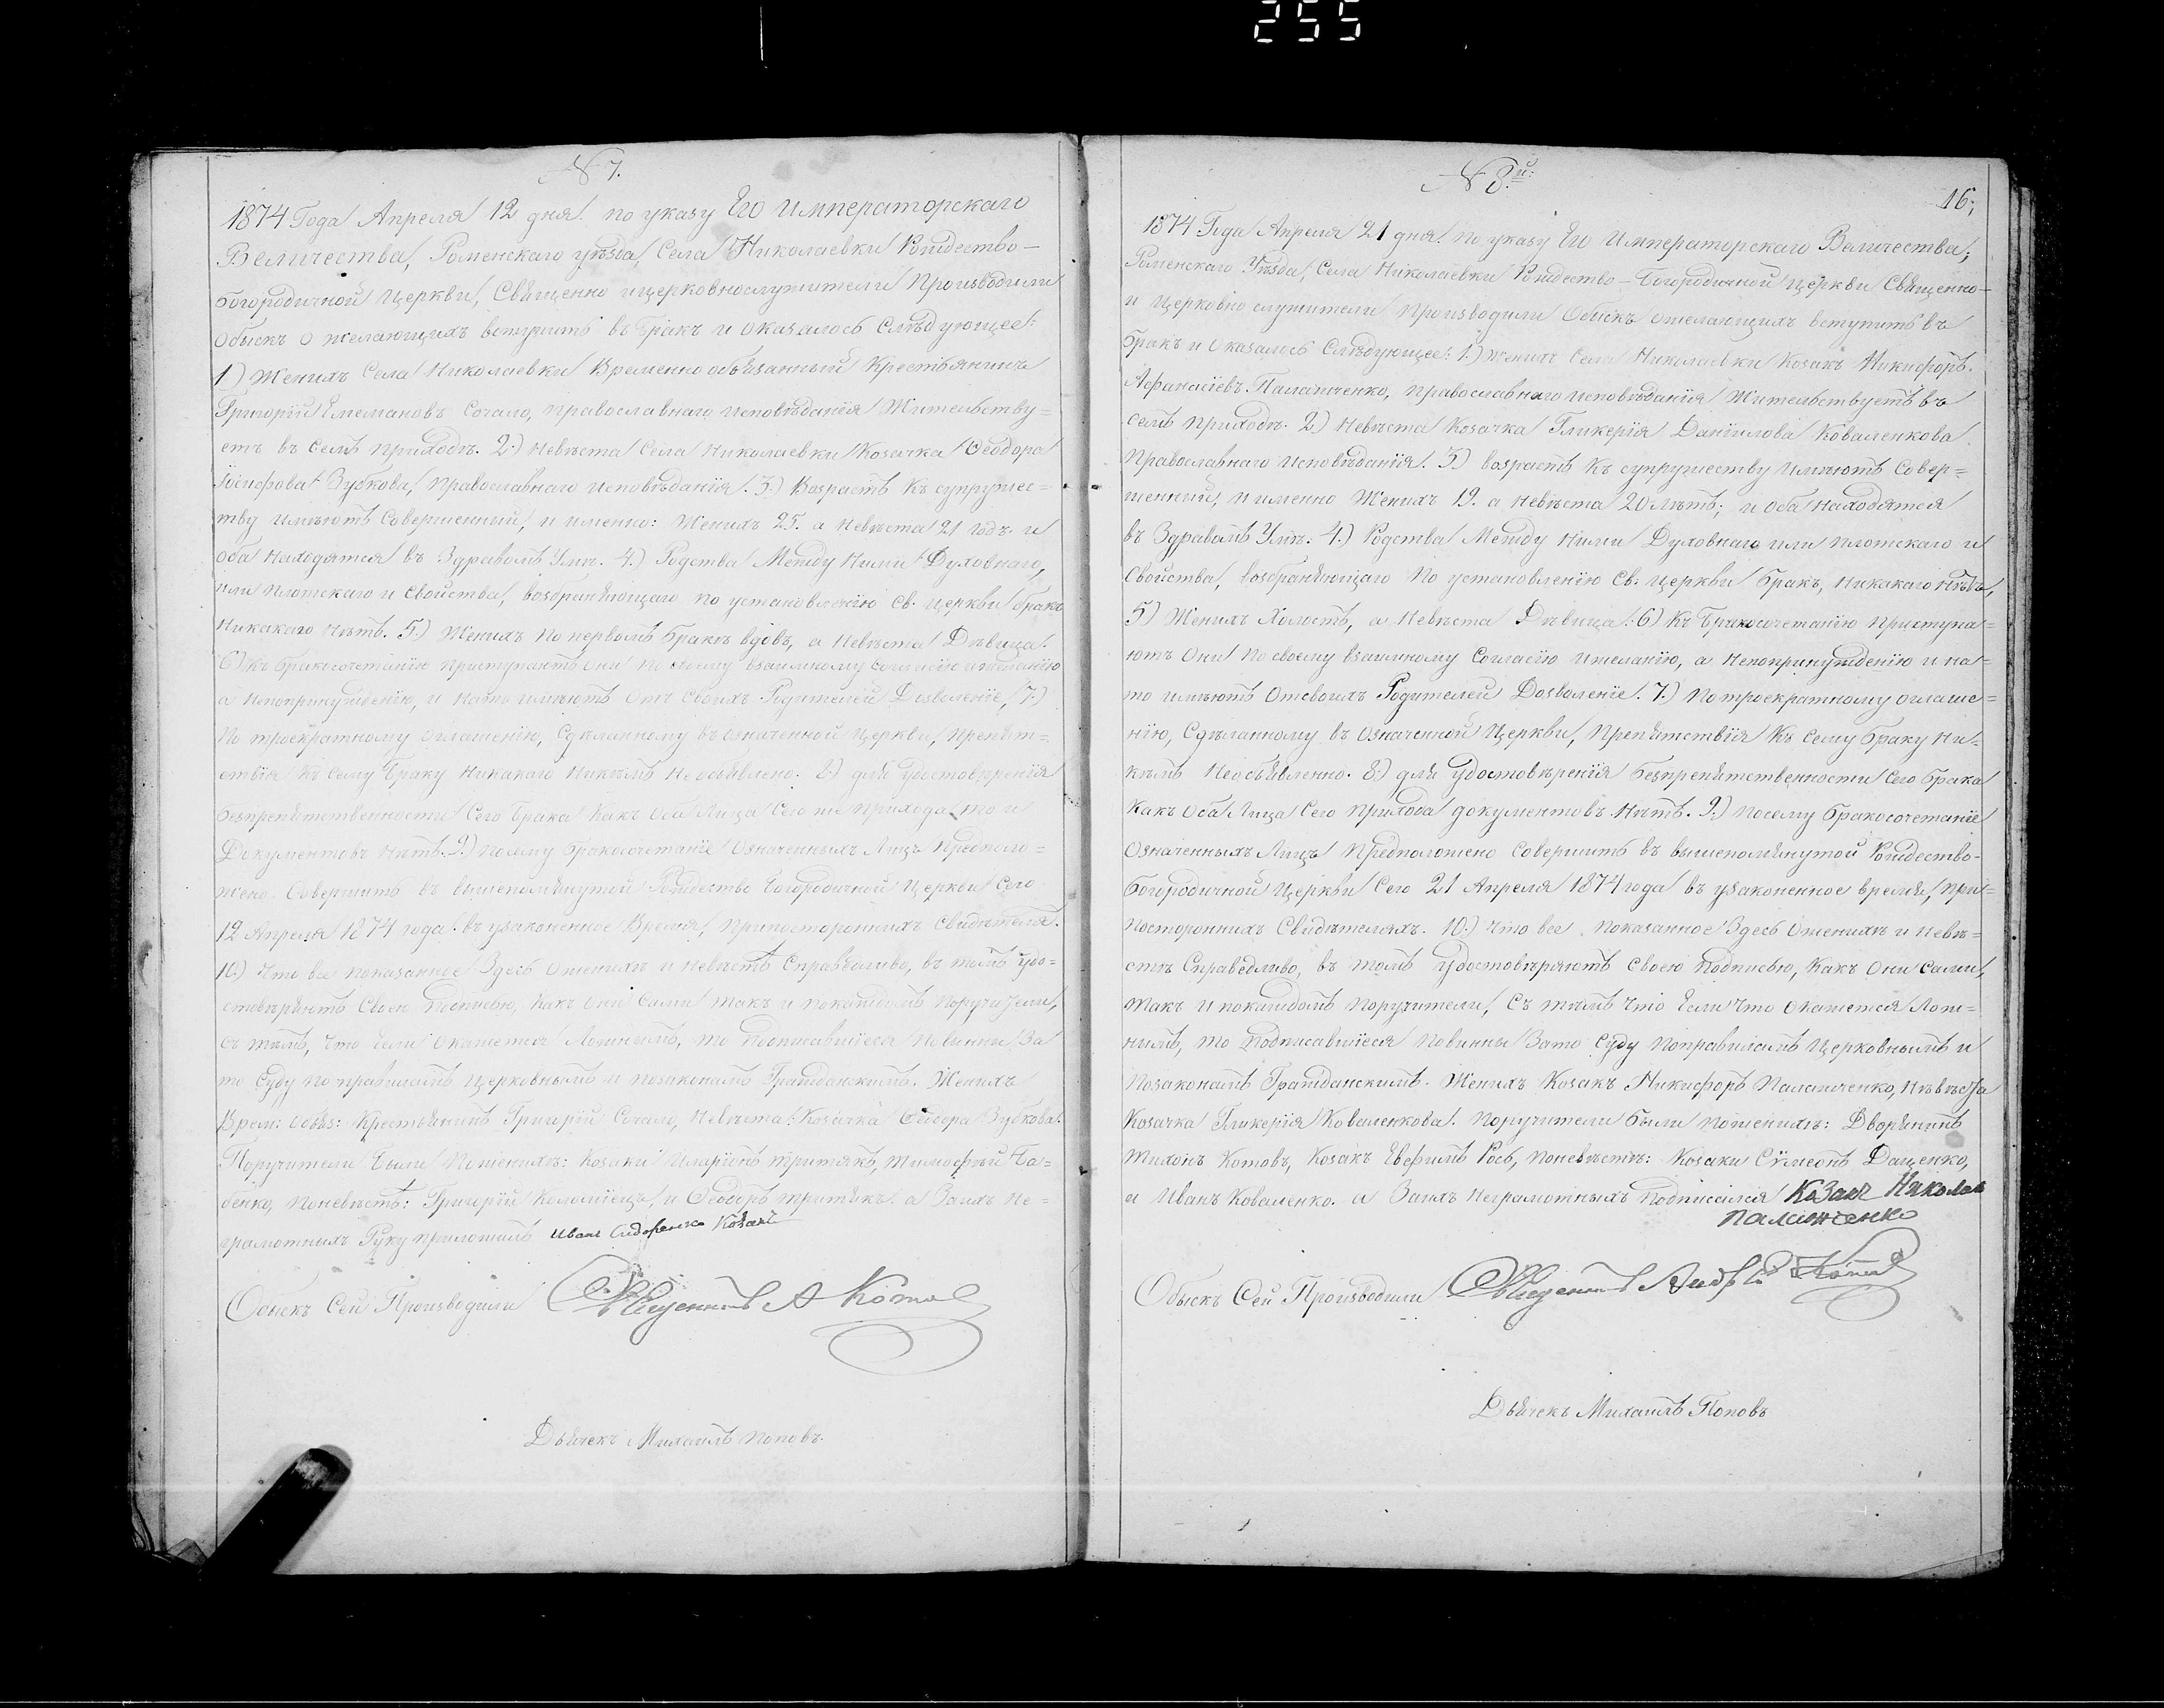 255
N 7.
1874 Года Апреля 12 дня. по указу Его Императорскаго
Величества, Роменскаго уѣзда, Села Николаевки Рождество-
Богородичной Церкви, Священно и церковнослужители Производили
Обыскъ о желающихъ вступить въ Бракъ и оказалось Слѣдующее:
1.) Женихъ Села Николаевки Временно обязанный Крестьянинъ
Григорій Сочало, православнаго исповѣданія Жительству=
етъ въ семъ приходѣ. 2.) Невѣста Села Николаевки Козачка Ѳеодора
Іосифова Зубкова, православнаго исповѣданія. 3.) Возрастъ къ супружес=
тву имѣютъ Совершенний, и именно: Женихъ 25. а Невѣста 21 годъ. и
оба находятся въ Здравомъ Умѣ. 4.) Родства Между Ними Духовнаго,
или Плотскаго и Свойства, возбраняющаго по установленію Св. Церкви бракъ
Никакаго Нѣтъ. 5.) Женихъ по первомъ бракѣ вдовъ, а Невѣста Дѣвица.
6.) къ бракосочетанію приступаютъ они по своему взаимному согласію и желанію
а непопринужденію, и на то имѣютъ отъ своихъ Родителей Дозволеніе, 7.)
По троекратному оглашенію, Сдѣланному въ означенной Церкви, Препят=
ствія къ сему Браку Никакаго Никѣмъ Не объявлено. 8.) для удостовѣренія
безпрепятственности Сего Брака Какъ Оба Лица Сего же прихода то и
Документовъ Нѣтъ. 9.) посему бракосочетаніе Означенныхъ Лицъ Предполо=
жено Совершить въ вышепомянутой Рождество Богородичной Церкви Сего
12 Апреля 1874 года. въ узаконенное Время, при постороннихъ Свидѣтеля.
10.) Что все показанное Здесь О женихѣ и невѣстѣ Справедливо, въ томъ удо=
стовѣряютъ Своею подписью, Какъ они Сами такъ и по каждомъ Поручители,
Съ тѣмъ, что Если окажется Ложнымъ, то подписавшіеся Повинны За
то Суду По правиламъ Церковнымъ и по законамъ Гражданскимъ. Женихъ
Врем: обяз: Крестьянинъ Григорій Сочало, Невѣста: Козачка Ѳеодора Зубкова.
Поручители были По женихѣ: Козаки Иларіонъ Притыкъ, Тимофѣй Ба=
бенко, По невѣстѣ: Григорій Коломіецъ, и Ѳеодоръ Притыкъ. а За ихъ не=
грамотныхъ Руку приложилъ Иванъ Сидоренко Козакъ
Обыскъ Сей Производили Священникъ А Котов
Дьячекъ Михаилъ Поповъ.
N 8.й:
16;
1874 Года Апреля 21 дня. По указу Его Императорскаго Величества;
Роменскаго Уѣзда, Села Николаевки Рождество-Богородичной Церкви Священно-
и Церковно служители Производили Обыскъ о желающихъ вступить въ
бракъ и оказалось Слѣдующее: 1.) женихъ Села Николаевки Козакъ Никифоръ.
Афанасіевъ Палажченко, православнаго исповѣданія Жительствуетъ въ
семъ приходѣ. 2.) Невѣста Козачка Гликерія Даніилова Коваленкова
Православнаго исповѣданія. 3.) возрастъ къ супружеству имѣютъ Совер=
шенний, и именно Женихъ 19. а Невѣста 20 лѣтъ; и оба Находятся
въ Здравомъ Умѣ. 4.) Родства Между Ними Духовнаго или плотскаго и
Свойства, возбраняющаго По установленію Св. Церкви бракъ, никакаго Нѣтъ,
5.) Женихъ Холостъ, а Невѣста Дѣвица. 6) Къ Бракосочетанію Приступа=
ютъ Они По своему взаимному Согласію и желанію, а непопринужденію и на=
то имѣютъ Отсвоихъ Родителей Дозволеніе. 7.) По троекратному оглаше=
нію, Сдѣланному въ означенной Церкви, Препятствія къ сему браку Ни=
кѣмъ Необъявленно. 8.) для удостовѣренія безпрепятственности Сего брака
Какъ оба Лица Сего Прихода документовъ Нѣтъ. 9.) посему бракосочетаніе
Означенныхъ Лицъ Предположено Совершить въ вышепомянутой Рождество-
богородичной Церкви Сего 21 Апреля 1874 года въ узаконенное время, при=
Постороннихъ Свидѣтеляхъ. 10.) Что все показанное Здесь О женихѣ и невѣ=
стѣ Справедливо, въ томъ удостовѣряютъ своею подписью, Какъ они Сами,
такъ и по каждомъ Поручители, Съ тѣмъ что Если что окажется Лож=
нымъ, то подписавшіеся Повинны За то Суду По правиламъ Церковнымъ и
По законамъ Гражданскимъ. Женихъ Козакъ Никифоръ Палажченко, Невѣста
Козачка Гликерія Коваленкова. Поручители были По женихѣ: Дворянинъ
Тихонъ Котовъ, Козакъ Евфимъ Рось, По невѣстѣ: Козаки Сѵмеонъ Даценко,
и Иванъ Коваленко. а За ихъ Неграмотныхъ Подписался Козакъ Николай
Палажченко
Обыскъ Сей Производили Священникъ Андрей Котов
Дьячекъ Михаилъ Поповъ